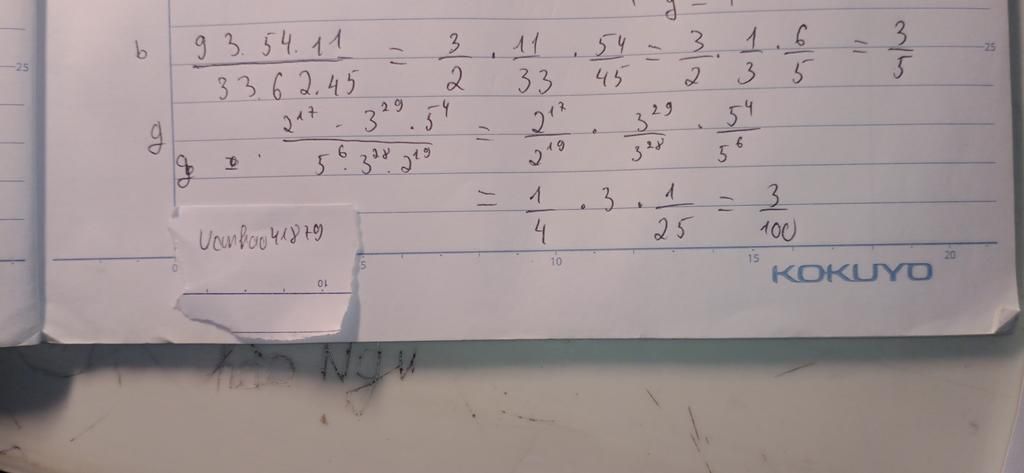 b 93.54.11 / 33.62.45 = 3/2 . 11/33 . 54/45 = 3/2 . 1/3 . 6/5 = 3/5
g 2¹⁷ - 3²⁹ . 5⁴ / 5⁶ . 3²⁸ . 2¹⁹ = 2¹⁷/2¹⁹ . 3²⁹/3²⁸ . 5⁴/5⁶
= 1/4 . 3 . 1/25 = 3/100
VanBao41879
0 5 10 15 20
25
25
10
KOKUYO